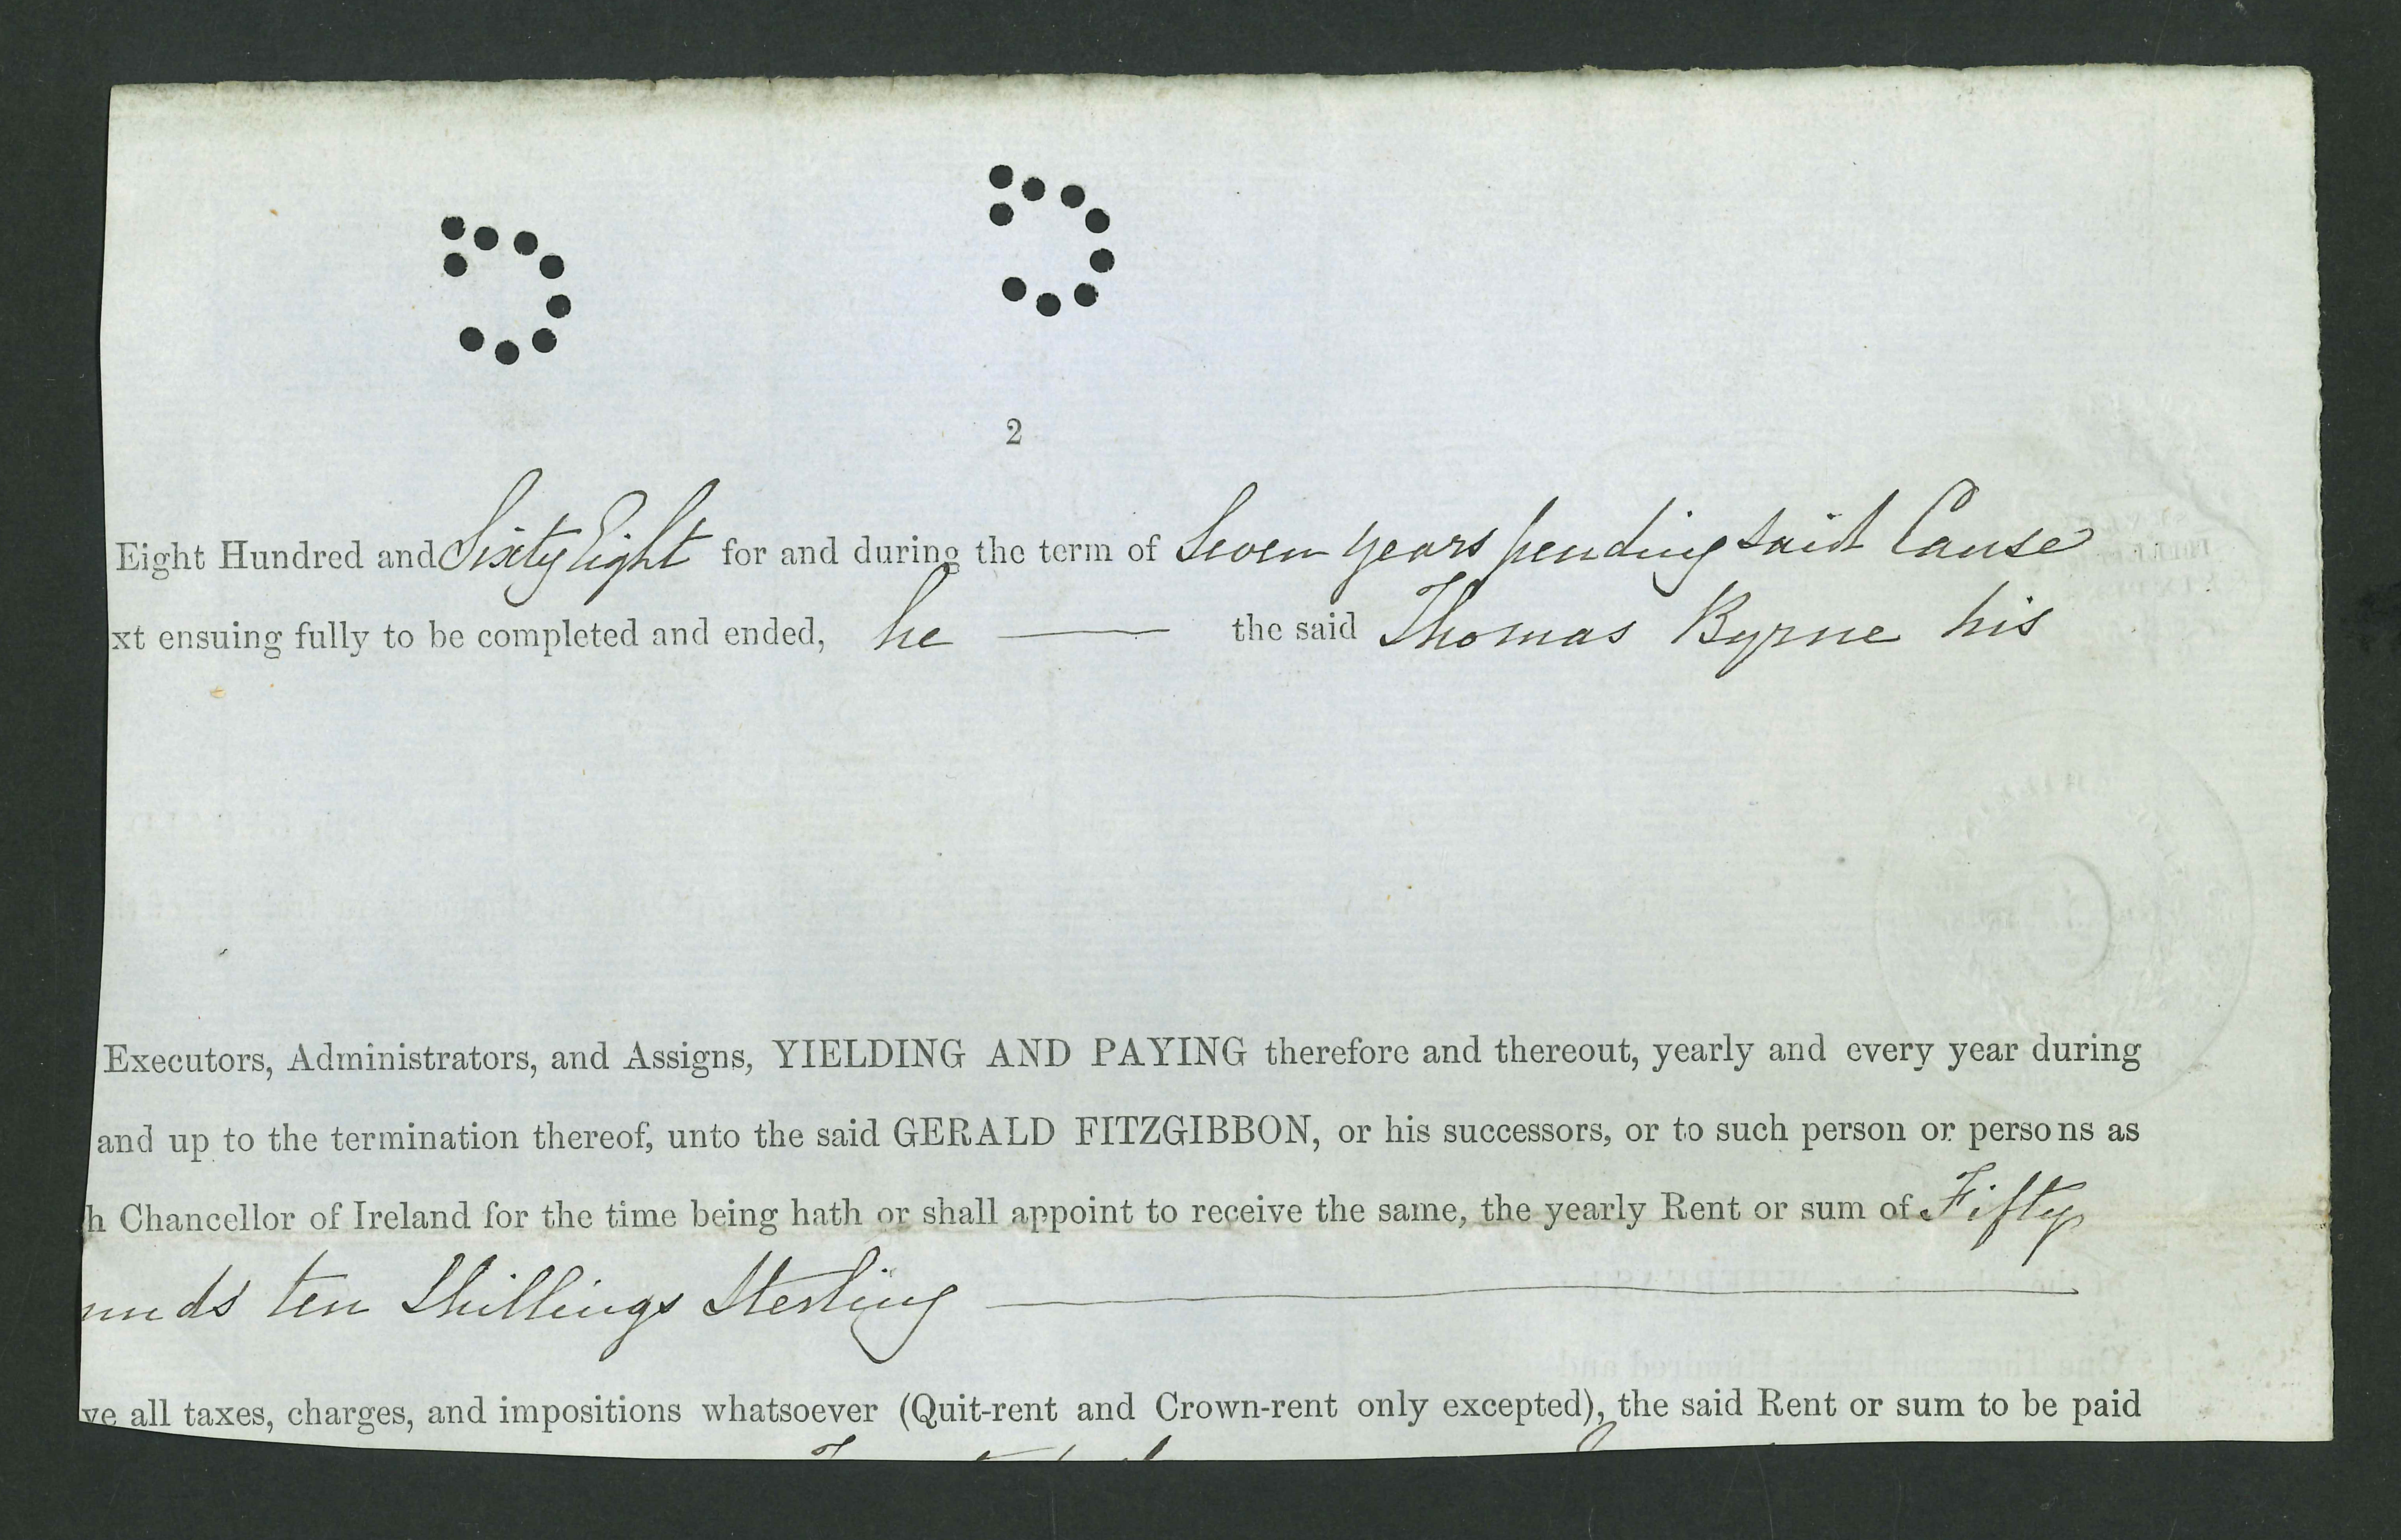 2
Eight Hundred and Sixty Eight for and during the term of Seven years pending said Cause
xt ensuing fully to be completed and ended, he the said Thomas Byrne his
Executors, Administrators, and Assigns, YIELDING AND PAYING therefore and thereout, yearly and every year during
and up to the termination thereof, unto the said GERALD FITZGIBBON, or his successors, or to such person or persons as
h Chancellor of Ireland for the time being hath or shall appoint to receive the same, the yearly Rent or sum of Fifty
unds ten Shillings Sterling
ve all taxes, charges, and impositions whatsoever (Quit-rent and Crown-rent only excepted), the said Rent or sum to be paid